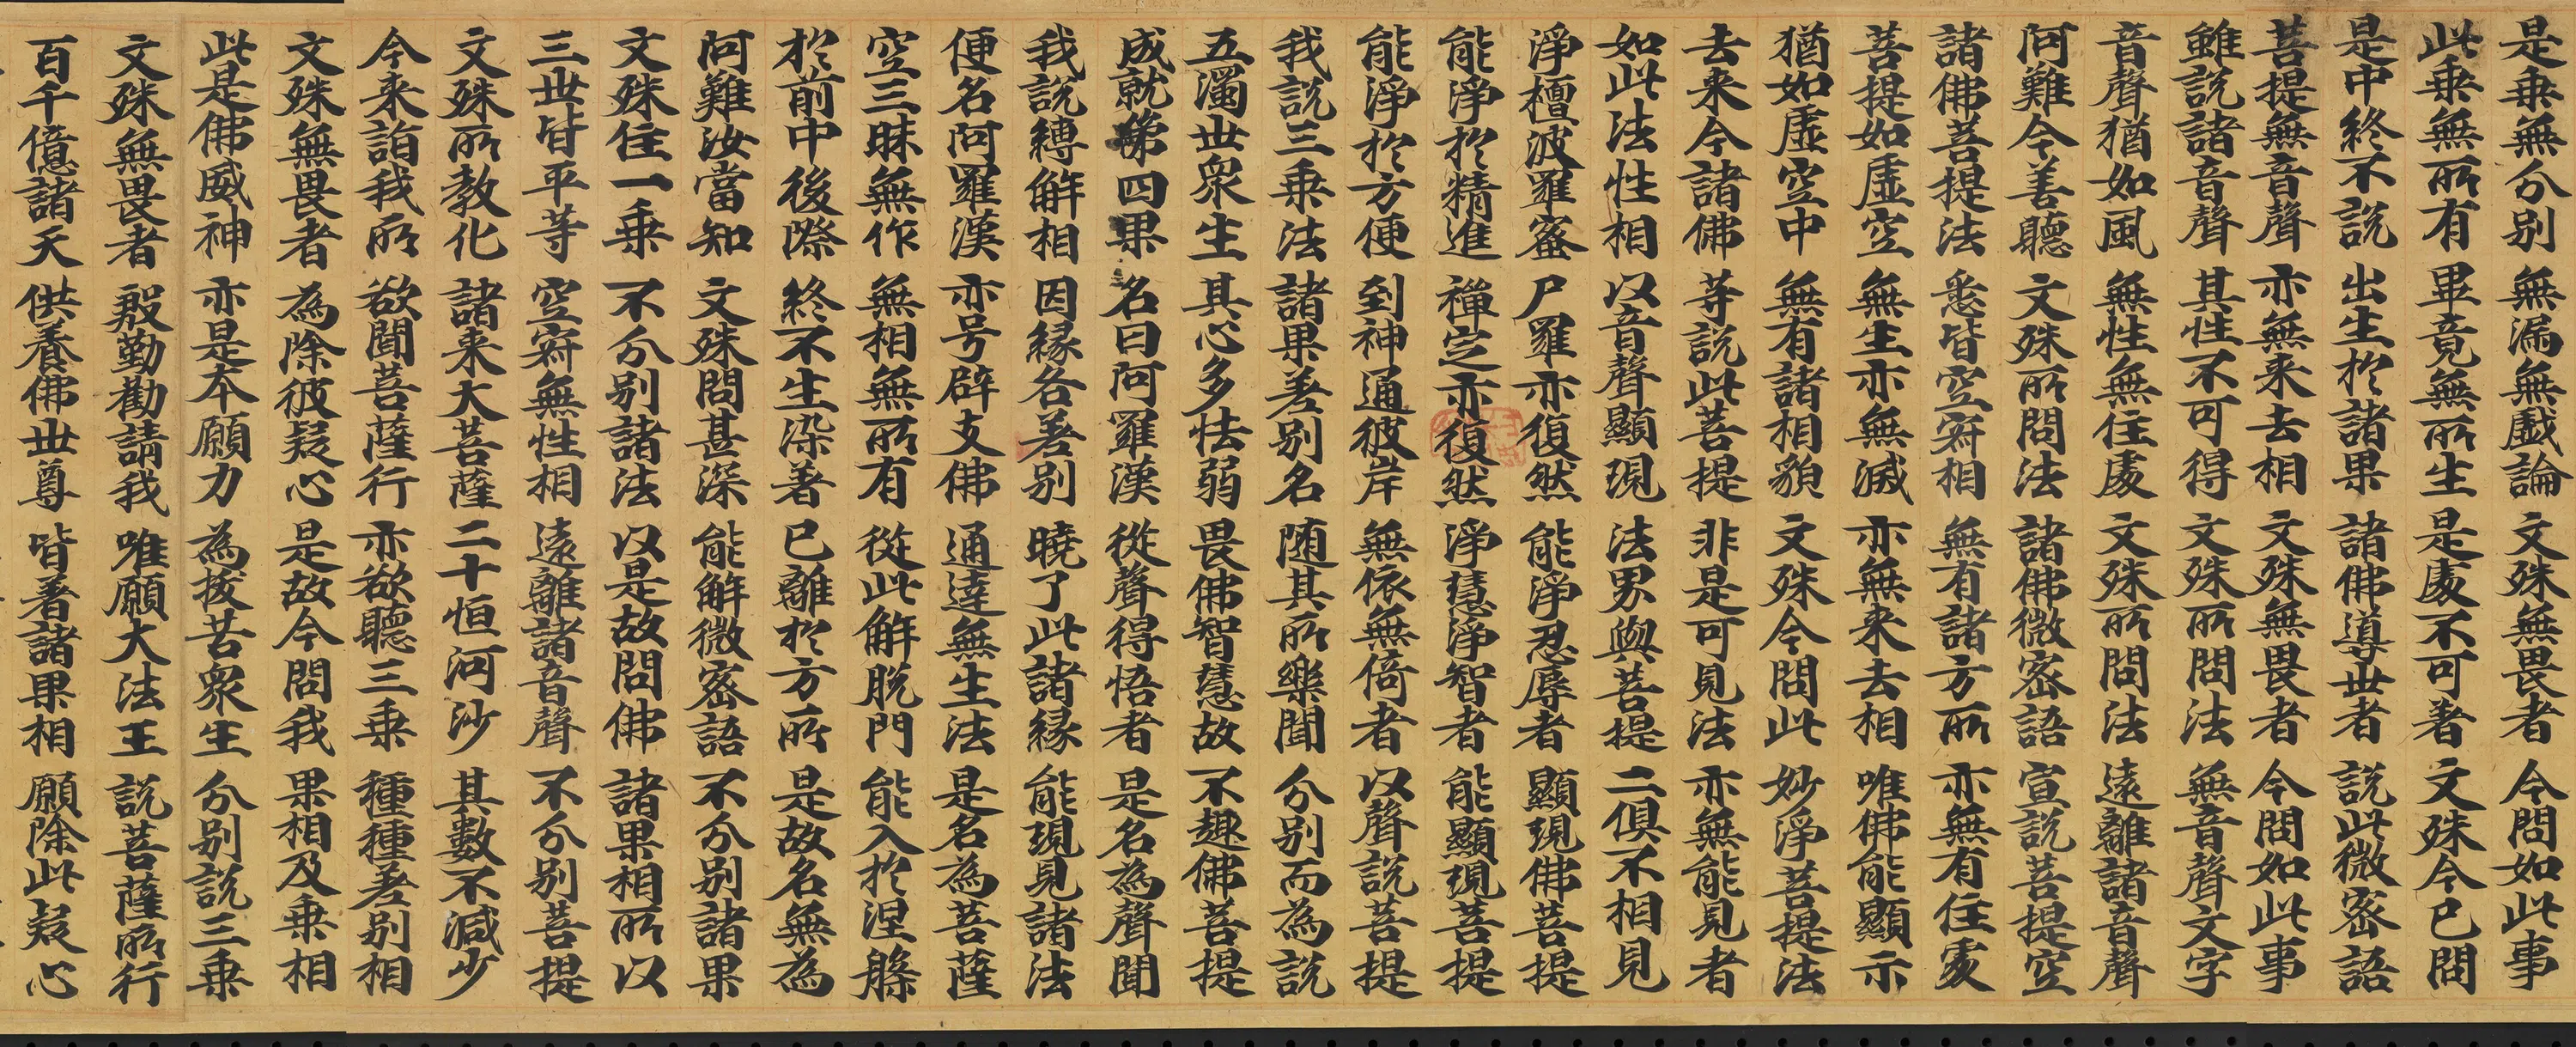 是乗無分别 無漏無戯論 文殊無畏者 今問如此事
此乗無所有 畢竟無所生 是處不可著 文殊今已問
是中終不説 出生於諸果 諸佛導世者 説此微密語
菩提無音聲 亦無来去相 文殊無畏者 今問如此事
雖説諸音聲 其性不可得 文殊所問法 無音聲文字
音聲猶如風 無性無住處 文殊所問法 遠離諸音聲
阿難今善聽 文殊所問法 諸佛微密語 宣説菩提空
諸佛菩提法 悉皆空寂相 無有諸方所 亦無有住處
菩提如虚空 無生亦無滅 亦無来去相 唯佛能顯示
猶如虚空中 無有諸相貌 文殊今問此 妙淨菩提法
去来今諸佛 等説此菩提 非是可見法 亦無能見者
如此法性相 以音聲顯現 法界與菩提 二俱不相見
淨檀波羅蜜 尸羅亦復然 能淨忍辱者 顯現佛菩提
能淨於精進 禪定亦復然 淨慧淨智者 能顯現菩提
能淨於方便 到神通彼岸 無依無倚者 以聲説菩提
我説三乗法 諸果差别名 随其所樂聞 分别而為説
五濁世衆生 其心多怯弱 畏佛智慧故 不趣佛菩提
成就第四果 名曰阿羅漢 從聲得悟者 是名為聲聞
我説縛解相 因縁各差别 曉了此諸縁 能現見諸法
便名阿羅漢 亦号辟支佛 通達無生法 是名為菩薩
空三昧無作 無相無所有 從此解脱門 能入於涅槃
於前中後際 終不生染著 已離於方所 是故名無為
阿難汝當知 文殊問甚深 能解微密語 不分别諸果
文殊住一乗 不分别諸法 以是故問佛 諸果相所以
三世皆平等 空寂無性相 遠離諸音聲 不分别菩提
文殊所教化 諸来大菩薩 二十恒河沙 其數不減少
今来詣我所 欲聞菩薩行 亦欲聽三乗 種種差别相
文殊無畏者 為除彼疑心 是故今問我 果相及乗相
此是佛威神 亦是本願力 為拔苦衆生 分别説三乗
文殊無畏者 殷勤勸請我 唯願大法王 説菩薩所行
百千億諸天 供養佛世尊 皆著諸果相 願除此疑心